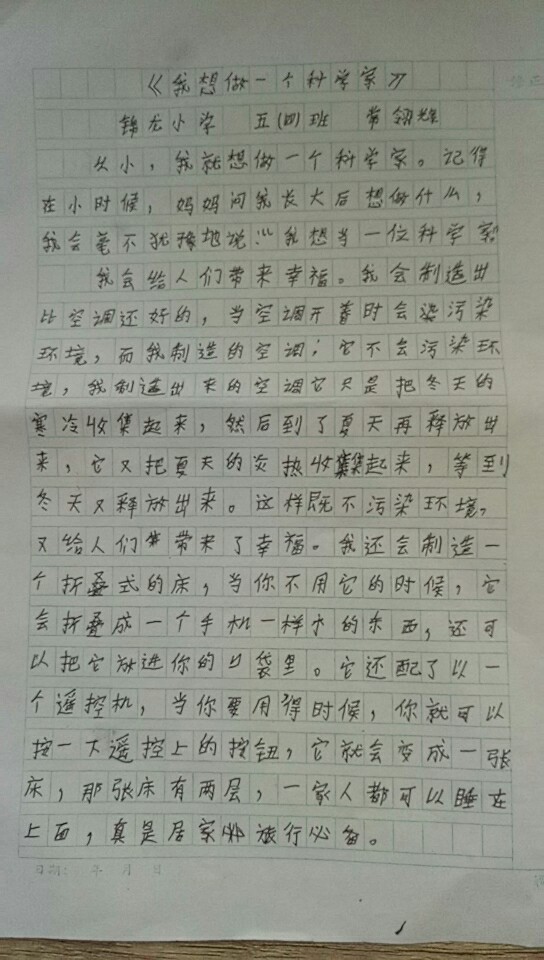 《我想做一个科学家》
锦龙小学 五(四)班 常翎烨
从小，我就想做一个科学家。记得
在小时候，妈妈问我长大后想做什么，
我会毫不犹豫地说：“我想当一位科学家”
我会给人们带来幸福。我会制造出
比空调还好的，当空调开着时会染污染
环境，而我制造的空调；它不会污染环
境，我制造出来的空调它只是把冬天的
寒冷收集起来，然后到了夏天再释放出
来，它又把夏天的炎热收集起来，等到
冬天又释放出来。这样既不污染环境，
又给人们带来了幸福。我还会制造一
个折叠式的床，当你不用它的时候，它
会折叠成一个手机一样大的东西，还可
以把它放进你的口袋里。它还配了以一
个遥控机，当你要用得时候，你就可以
按一下遥控上的按钮，它就会变成一张
床，那张床有两层，一家人都可以睡在
上面，真是居家旅行必备。
日期： 年 月 日